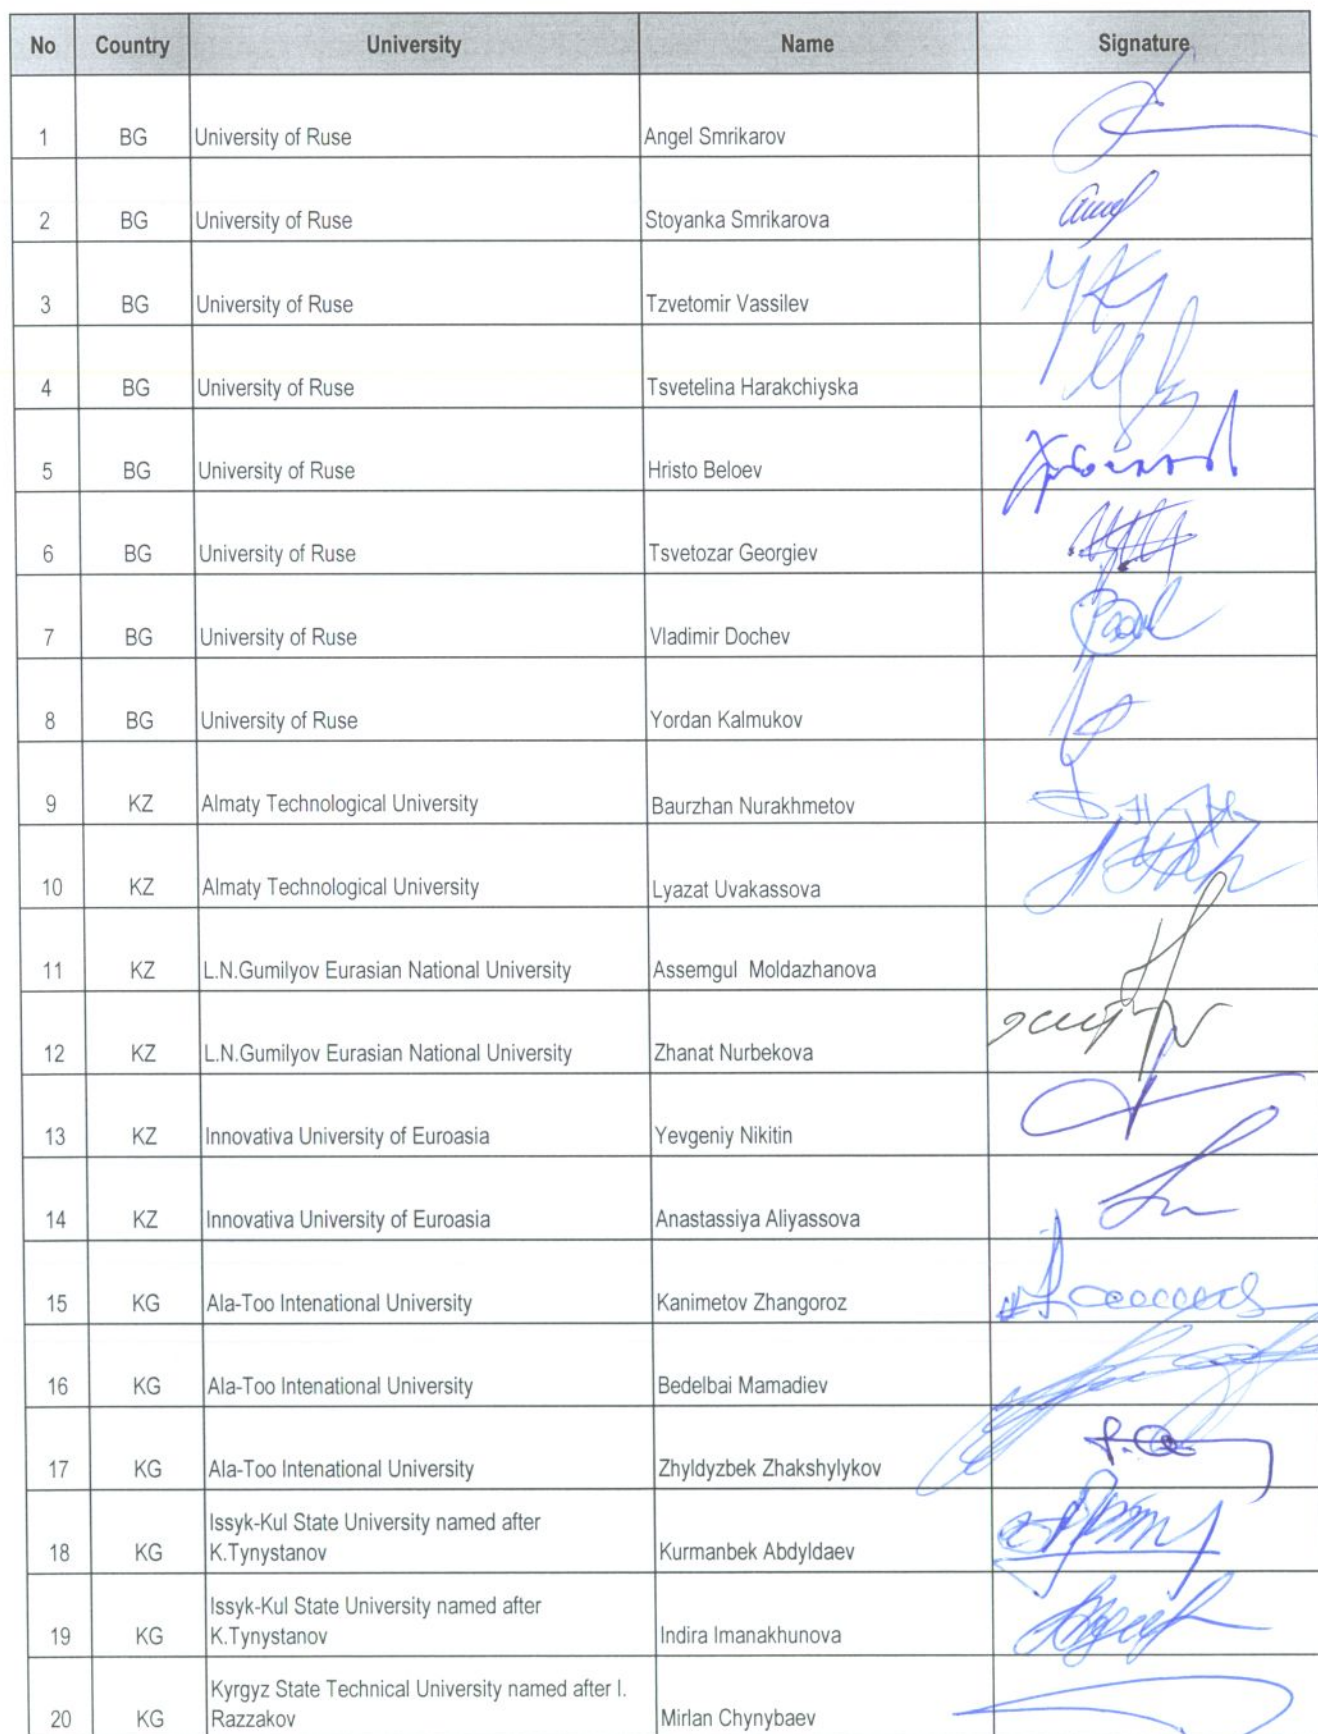 No Country University Name Signature
1 BG University of Ruse Angel Smrikarov
2 BG University of Ruse Stoyanka Smrikarova
3 BG University of Ruse Tzvetomir Vassilev
4 BG University of Ruse Tsvetelina Harakchiyska
5 BG University of Ruse Hristo Beloev
6 BG University of Ruse Tsvetozar Georgiev
7 BG University of Ruse Vladimir Dochev
8 BG University of Ruse Yordan Kalmukov
9 KZ Almaty Technological University Baurzhan Nurakhmetov
10 KZ Almaty Technological University Lyazat Uvakassova
11 KZ L.N.Gumilyov Eurasian National University Assemgul Moldazhanova
12 KZ L.N.Gumilyov Eurasian National University Zhanat Nurbekova
13 KZ Innovativa University of Euroasia Yevgeniy Nikitin
14 KZ Innovativa University of Euroasia Anastassiya Aliyassova
15 KG Ala-Too Intenational University Kanimetov Zhangoroz
16 KG Ala-Too Intenational University Bedelbai Mamadiev
17 KG Ala-Too Intenational University Zhyldyzbek Zhakshylykov
Issyk-Kul State University named after
18 KG K.Tynystanov Kurmanbek Abdyldaev
Issyk-Kul State University named after
19 KG K.Tynystanov Indira Imanakhunova
Kyrgyz State Technical University named after I.
20 KG Razzakov Mirlan Chynybaev